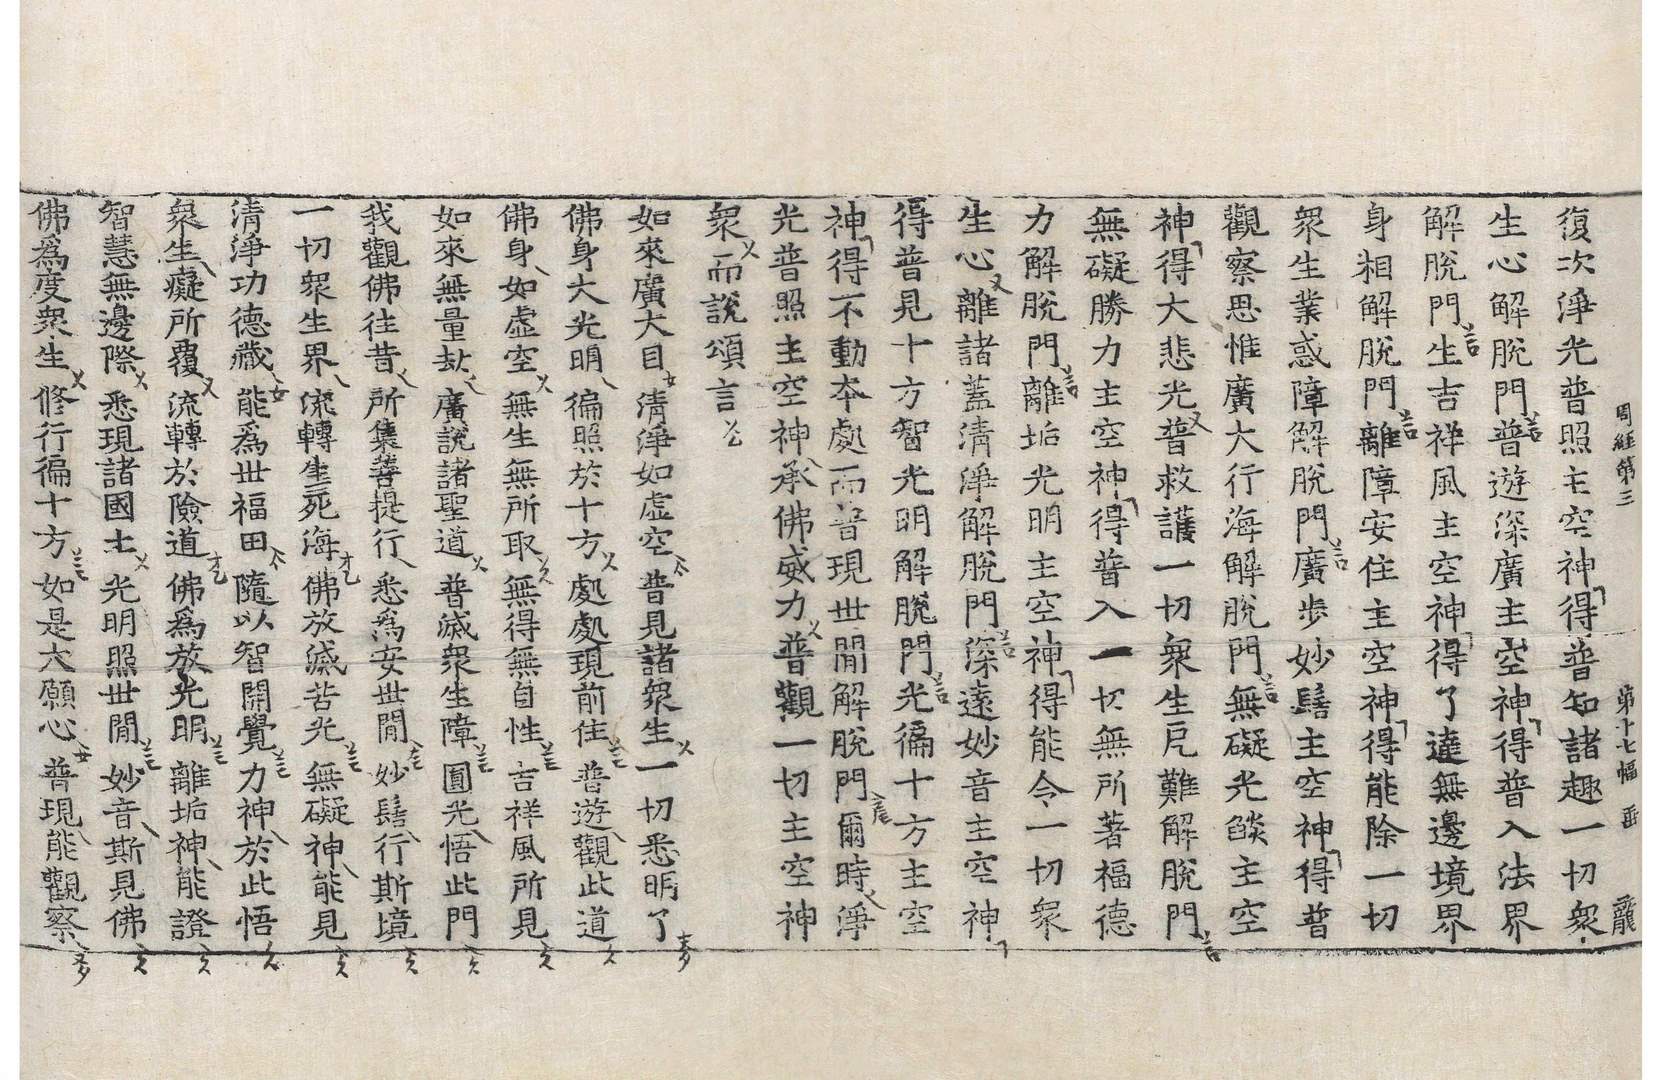 周經第三 第十七幅 龍
復次淨光普照主空神得普知諸趣一切衆
生心解脫門普遊深廣主空神得普入法界
解脫門生吉祥風主空神得了達無邊境界
身相解脫門離障安住主空神得能除一切
衆生業惑障解脫門廣步妙髻主空神得普
觀察思惟廣大行海解脫門無礙光燄主空
神得大悲光普救護一切衆生厄難解脫門
無礙勝力主空神得普入一切無所著福德
力解脫門離垢光明主空神得能令一切衆
生心離諸蓋清淨解脫門深遠妙音主空神
得普見十方智光明解脫門光徧十方主空
神得不動本處而普現世間解脫門爾時淨
光普照主空神承佛威力普觀一切主空神
衆而說頌言
如來廣大目 清淨如虛空 普見諸衆生 一切悉明了
佛身大光明 徧照於十方 處處現前住 普遊觀此道
佛身如虛空 無生無所取 無得無自性 吉祥風所見
如來無量劫 廣說諸聖道 普滅衆生障 圓光悟此門
我觀佛往昔 所集菩提行 悉爲安世間 妙髻行斯境
一切衆生界 流轉生死海 佛放滅苦光 無礙神能見
清淨功德藏 能爲世福田 隨以智開覺 力神於此悟
衆生癡所覆 流轉於險道 佛爲放光明 離垢神能證
智慧無邊際 悉現諸國土 光明照世間 妙音斯見佛
佛爲度衆生 修行徧十方 如是大願心 普現能觀察